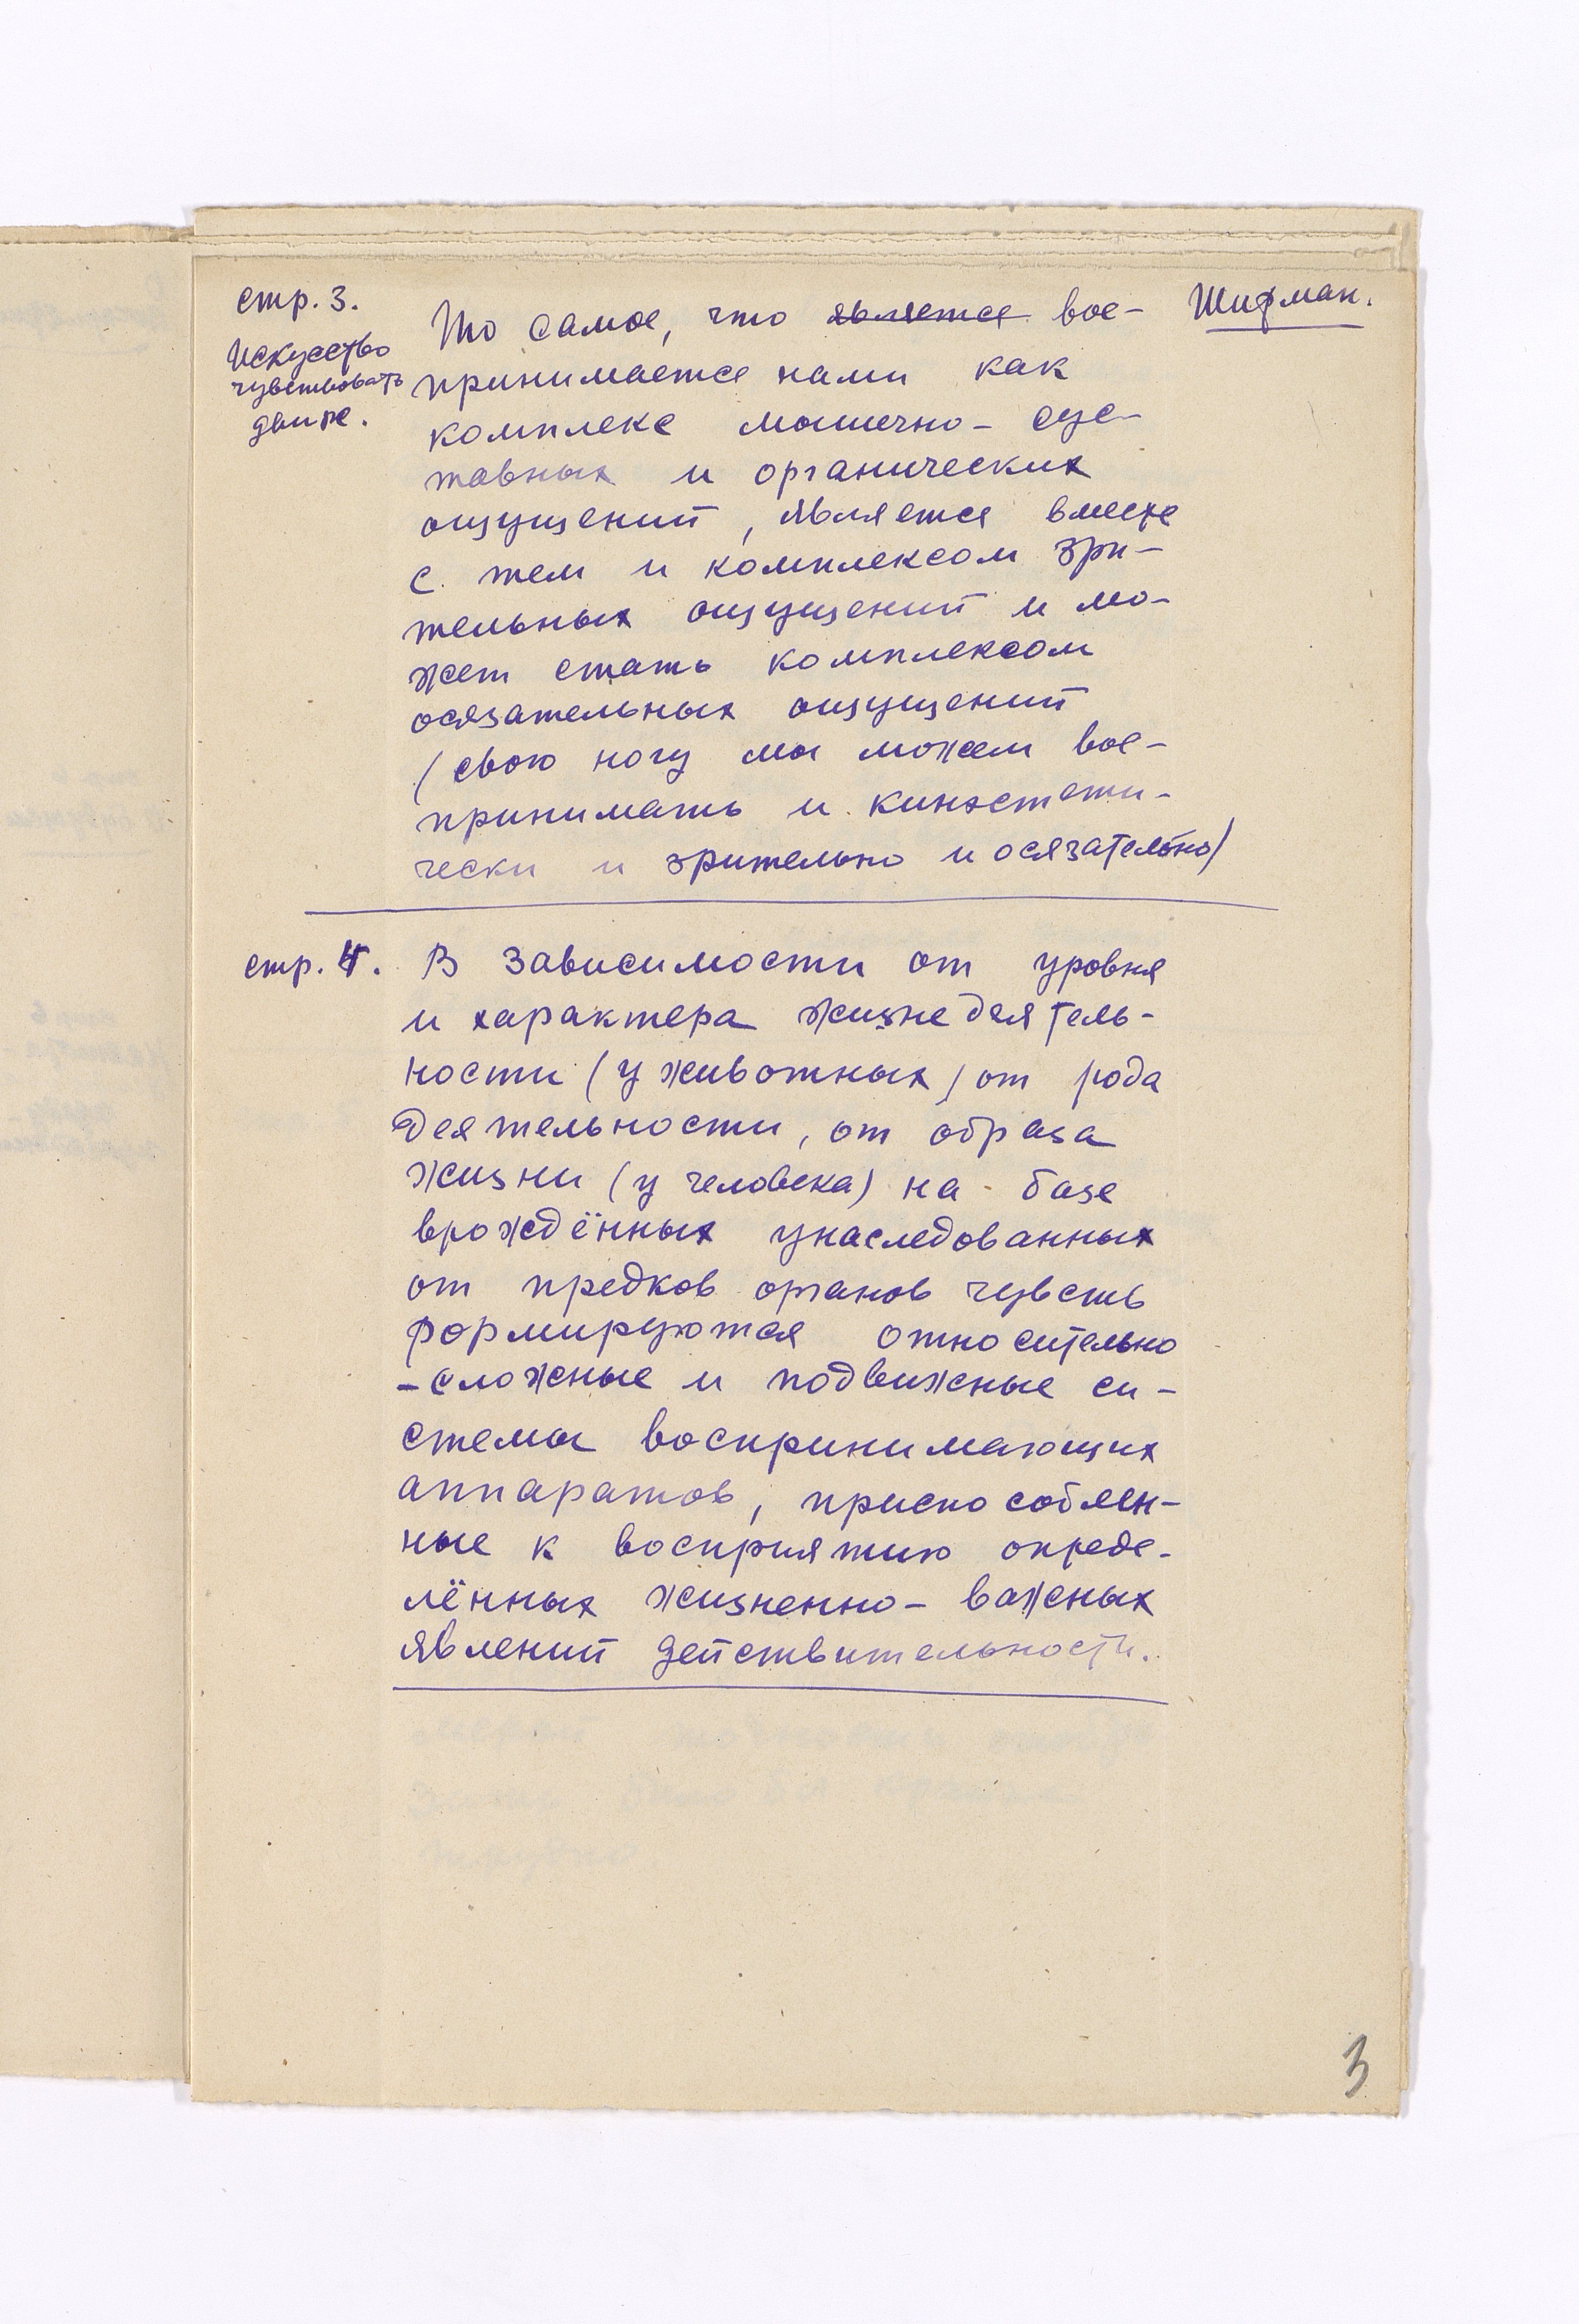 стр. 3.
Искусство
чувствовать
движ.
Шифман.
То самое, что является вос-
принимается нами как
комплекс мышечно- сус-
тавных и органических
ощущений, является вместе
с тем и комплексом зри-
тельных ощущений и мо-
жет стать комплексом
осязательных ощущений
(свою ногу мы можем вос-
принимать и кинэстети-
чески и зрительно и осязательно)
стр. 4. В зависимости от уровня
и характера жизнедеятель-
ности (у животных) от рода
деятельности, от образа
жизни (у человека) на базе
врождённых унаследованных
от предков органов чувств
формируются относительно
-сложные и подвижные си-
стемы воспринимающих
аппаратов, приспособлен-
ные к восприятию опреде-
лённых жизненно- важных
явлений действительности.
3